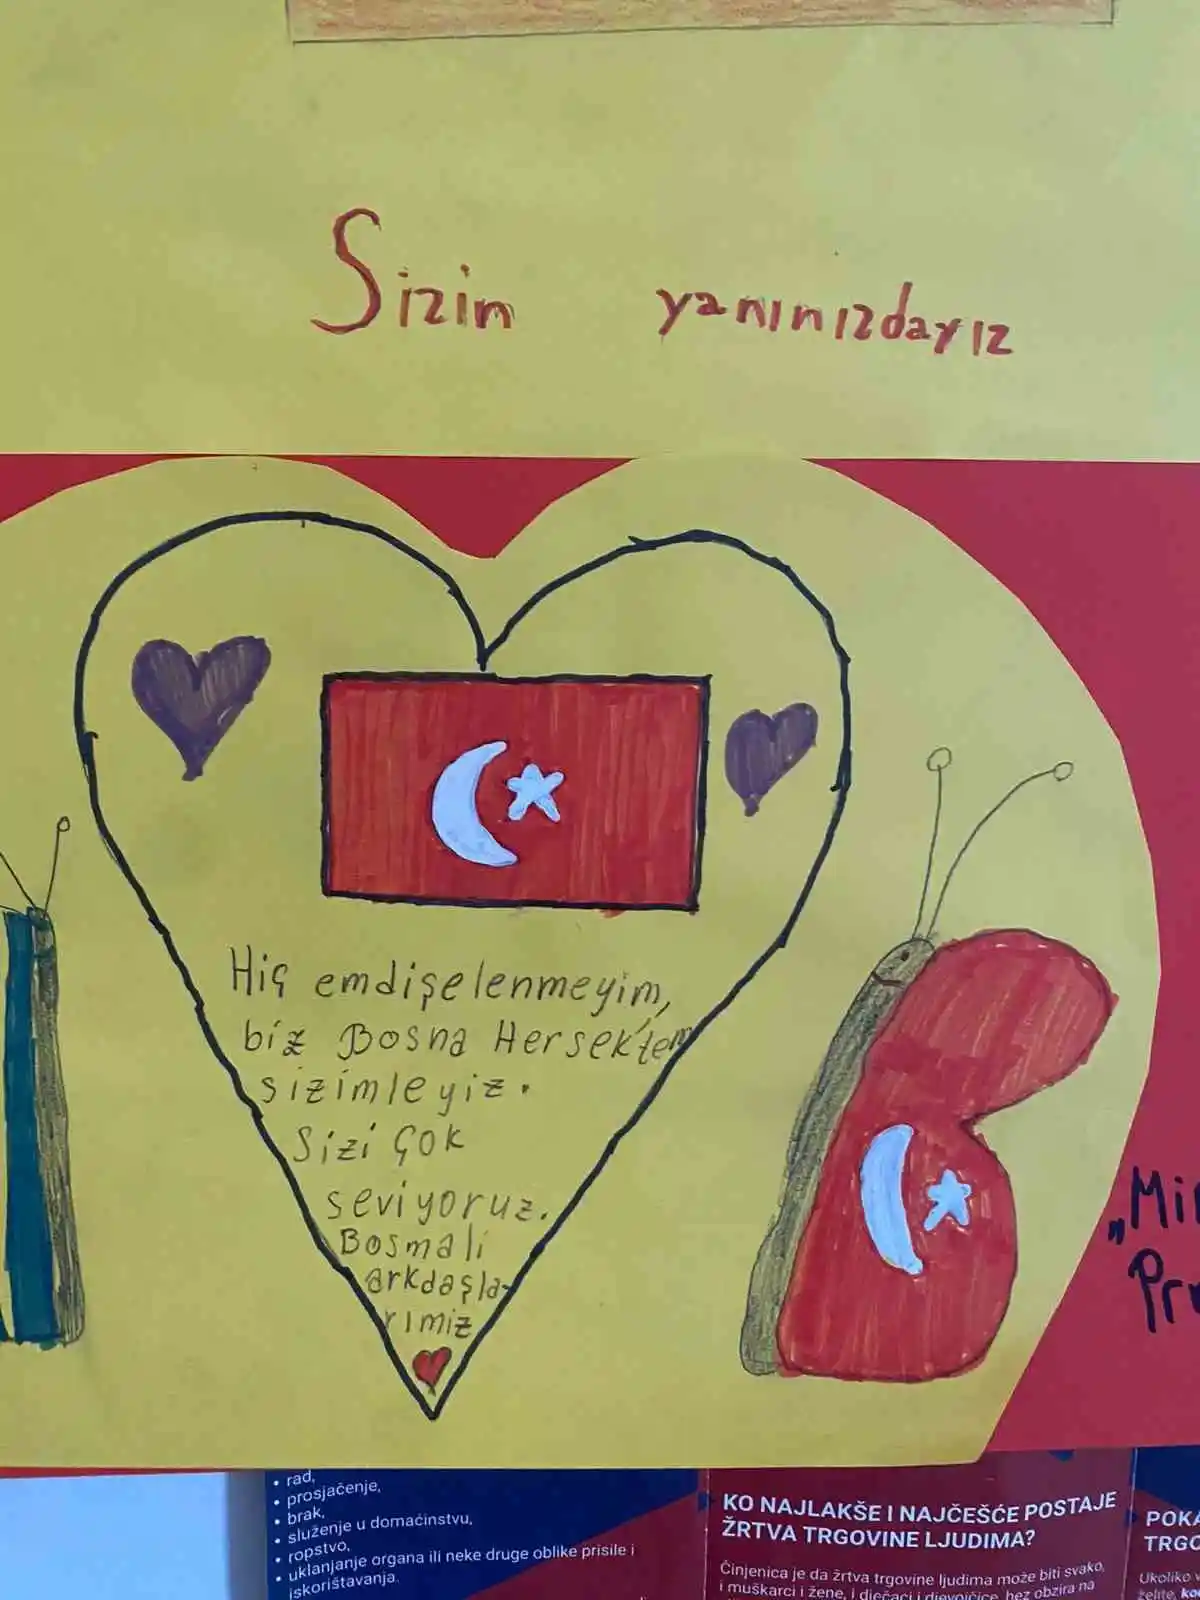 Sizin yanınızdayız
Hiç emdişelenmeyim,
biz Bosna Hersek'tem
sizimleyiz.
Sizi çok
seviyoruz.
Bosmali
arkdaşla-
rımiz
"Mi
Pr
• rad,
• prosjačenje,
• brak,
• služenje u domaćinstvu,
• ropstvo,
• uklanjanje organa ili neke druge oblike prisile i
iskorištavanja.
KO NAJLAKŠE I NAJČEŠĆE POSTAJE
ŽRTVA TRGOVINE LJUDIMA?
Činjenica je da žrtva trgovine ljudima može biti svako,
i muškarci i žene, i dječaci i djevojčice, bez obzira na
POKA
TRGO
Ukoliko
želite,